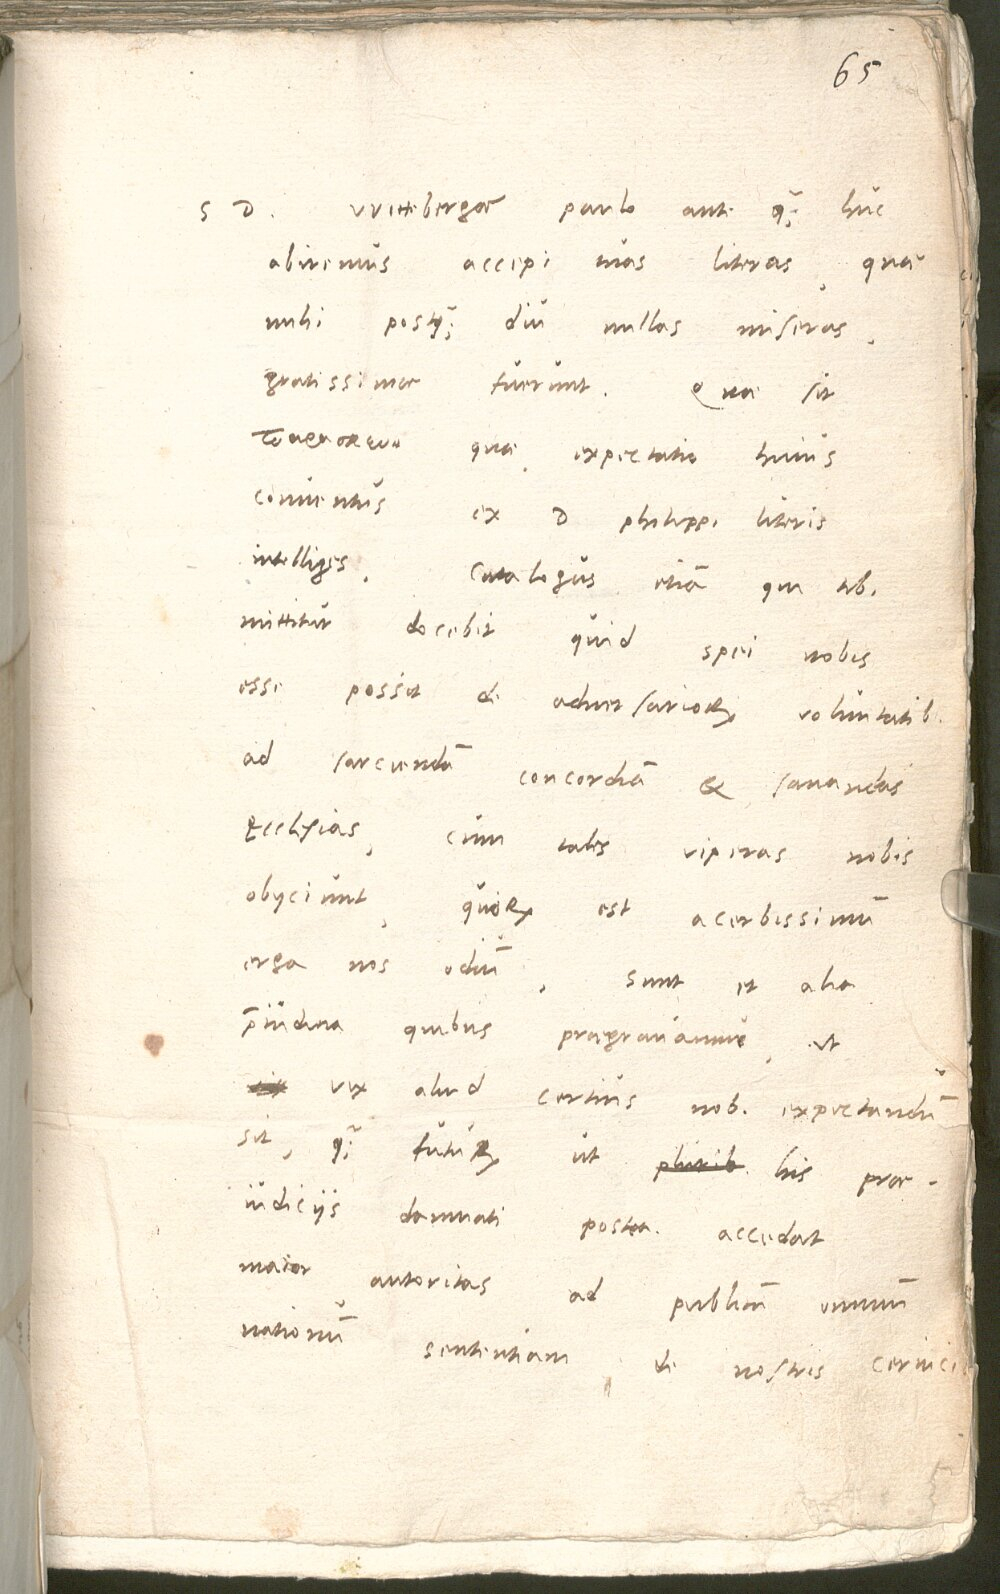 65
S D. VVittebergæ paulo ante qȝ̃ huc
abiremus accepi tuas literas, quæ
mihi postqȝ̃ diu nullas miseras,
gratissimæ fuerunt. Quæ sit
quæ expectatio huius
conuentus ex D philippi literis
intelliges, Catalogus etiã qui tib.
mittitur docebit quid spei nobis
esse possit de aduersarioꝝ voluntatib.
ad sarciendã concordiã & sanandas
Ecclesias, cum tales viperas nobis
obijciunt, quoꝝ est acerbissimũ
erga nos odiũ, sunt et alia
p̃iudicia quibus prægrauamur, ut
vix aliud certius nob. expectandũ
sit, qȝ̃ futuꝝ ut plurib. his præ-
iudicijs damnati postea accedat
maior autoritas ad publicã omniũ
nationũ sententiam de nostris ceruici